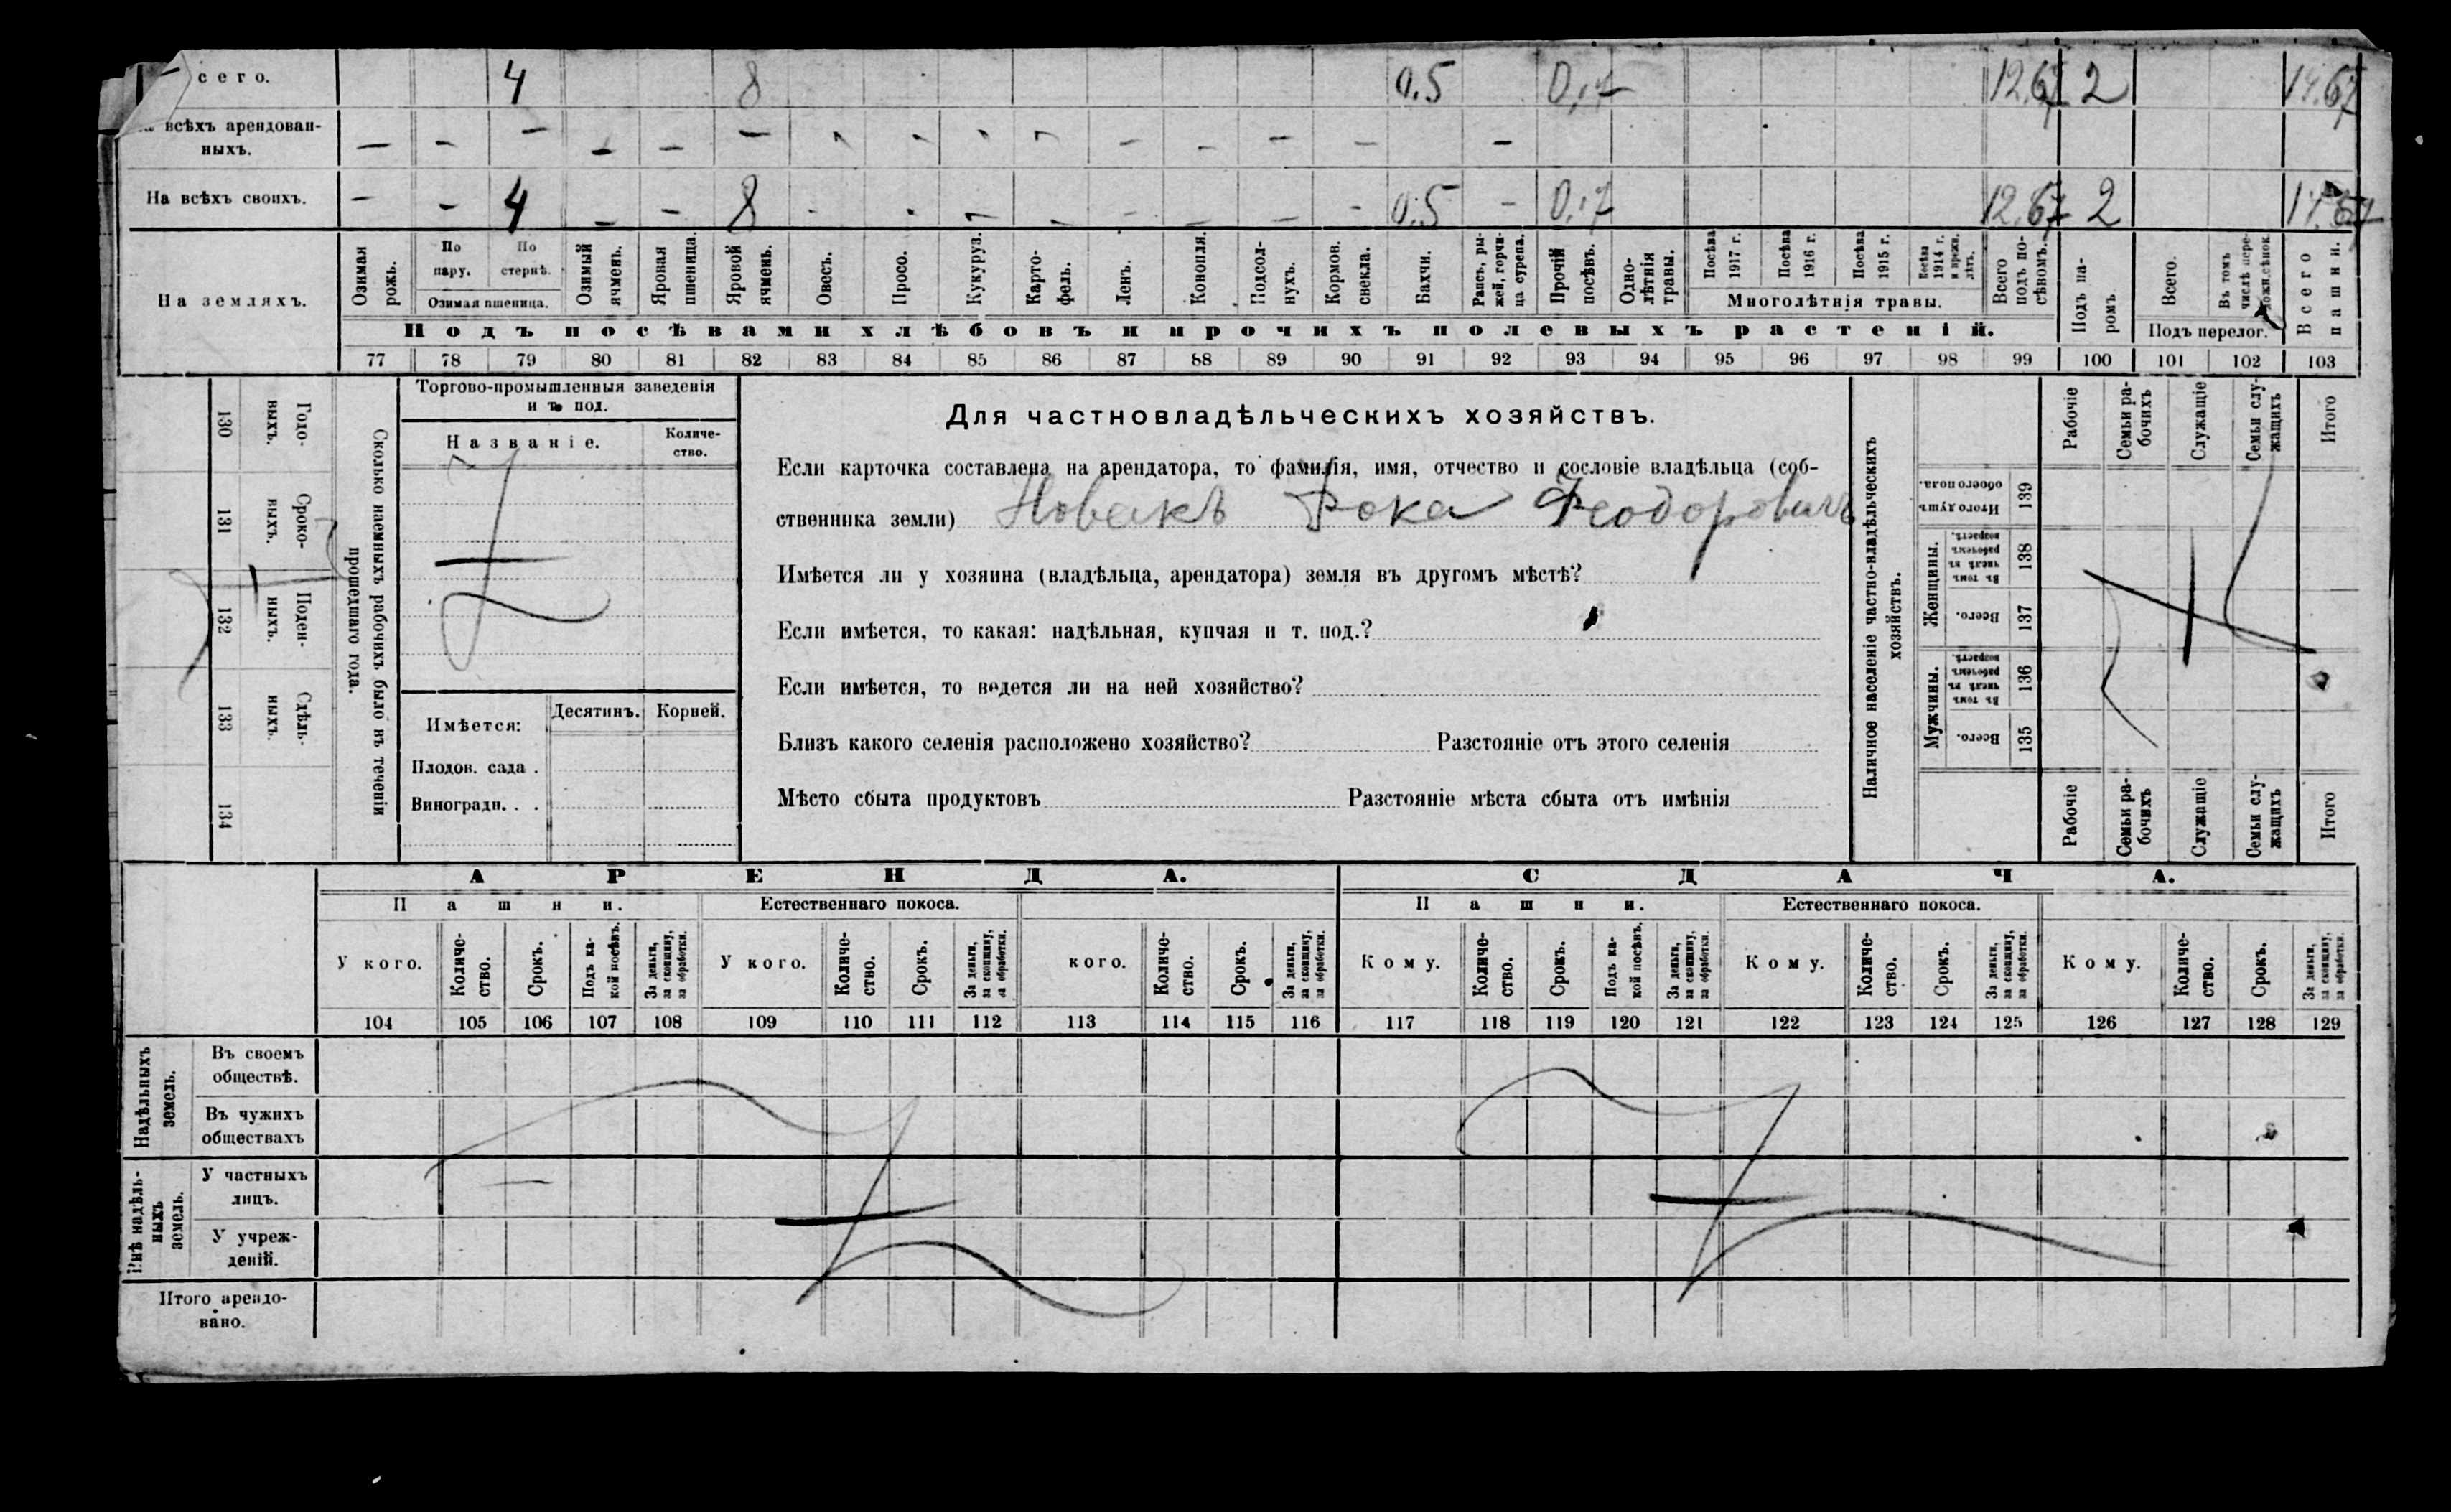 с е г о. 4 8 0.5 0,17 12.67 2 14.67
всѣхъ арендован-
ныхъ. — - — - - — - - - - - - - - -
На всѣхъ своихъ. — - 4 - - 8 - - - - - - - - 0.5 - 0,17 12.67 2 14.67
На земляхъ.
Озимая рожь.
По пару.
По стернѣ.
Озимая пшеница.
Озимый ячмень.
Яровая пшеница.
Яровой ячмень.
Овесъ.
Просо.
Кукуруз.
Карто-
фель.
Ленъ.
Конопля.
Подсол-
нухъ.
Кормов.
свекла.
Бахчи.
Рапсъ, ры-
жей, горчи-
ца сурепа.
Прочій
посѣвъ.
Одно-
лѣтнія
травы.
Посѣва
1917 г.
Посѣва
1916 г.
Посѣва
1915 г.
Посѣва
1914 г.
и прежн.
лѣтъ.
Многолѣтнія травы.
Всего
подъ по-
сѣвомъ.
Подъ па-
ромъ.
Всего.
Въ томъ
числѣ пере-
ложн. сѣнок.
Подъ перелог.
Всего
пашни.
Подъ посѣвами хлѣбовъ и прочихъ полевыхъ растеній.
77 78 79 80 81 82 83 84 85 86 87 88 89 90 91 92 93 94 95 96 97 98 99 100 101 102 103
Сколько наемныхъ рабочихъ было въ теченіи
прошедшаго года.
Годо-
выхъ.
130
Сроко-
выхъ.
131
Поден-
ныхъ.
132
Сдѣль-
ныхъ.
133
134
Торгово-промышленныя заведенія
и т. под.
Названіе.
Количе-
ство.
Имѣется:
Десятинъ.
Корней.
Плодов. сада .
Виноградн. . .
Для частновладѣльческихъ хозяйствъ.
Если карточка составлена на арендатора, то фамилія, имя, отчество и сословіе владѣльца (соб-
ственника земли) Новакъ Фока Феодоровичъ
Имѣется ли у хозяина (владѣльца, арендатора) земля въ другомъ мѣстѣ?
Если имѣется, то какая: надѣльная, купчая и т. под.?
Если имѣется, то ведется ли на ней хозяйство?
Близъ какого селенія расположено хозяйство? Разстояніе отъ этого селенія
Мѣсто сбыта продуктовъ Разстояніе мѣста сбыта отъ имѣнія
Наличное населеніе частно-владѣльческихъ
хозяйствъ.
Рабочіе
Семьи ра-
бочихъ
Служащіе
Семьи слу-
жащихъ
Итого
Итого душъ
обоего пола.
139
Женщины.
Въ томъ
числѣ въ
рабочемъ
возрастѣ.
138
Всего.
137
Мужчины.
Въ томъ
числѣ въ
рабочемъ
возрастѣ.
136
Всего.
135
Рабочіе
Семьи ра-
бочихъ
Служащіе
Семьи слу-
жащихъ
Итого
АРЕНДА. СДАЧА.
Пашни. Естественнаго покоса. Пашни. Естественнаго покоса.
У кого.
Количе-
ство.
Срокъ.
Подъ ка-
кой посѣвъ.
За деньги,
за скопщину,
за обработки.
У кого.
Количе-
ство.
Срокъ.
За деньги,
за скопщину,
за обработки.
кого.
Количе-
ство.
Срокъ.
За деньги,
за скопщину,
за обработки.
Кому.
Количе-
ство.
Срокъ.
Подъ ка-
кой посѣвъ.
За деньги,
за скопщину,
за обработки.
Кому.
Количе-
ство.
Срокъ.
За деньги,
за скопщину,
за обработки.
Кому.
Количе-
ство.
Срокъ.
За деньги,
за скопщину,
за обработки.
104 105 106 107 108 109 110 111 112 113 114 115 116 117 118 119 120 121 122 123 124 125 126 127 128 129
Надѣльныхъ
земель.
Въ своемъ
обществѣ.
Въ чужихъ
обществахъ
Внѣ надѣль-
ныхъ
земель.
У частныхъ
лицъ.
У учреж-
деній.
Итого арендо-
вано.